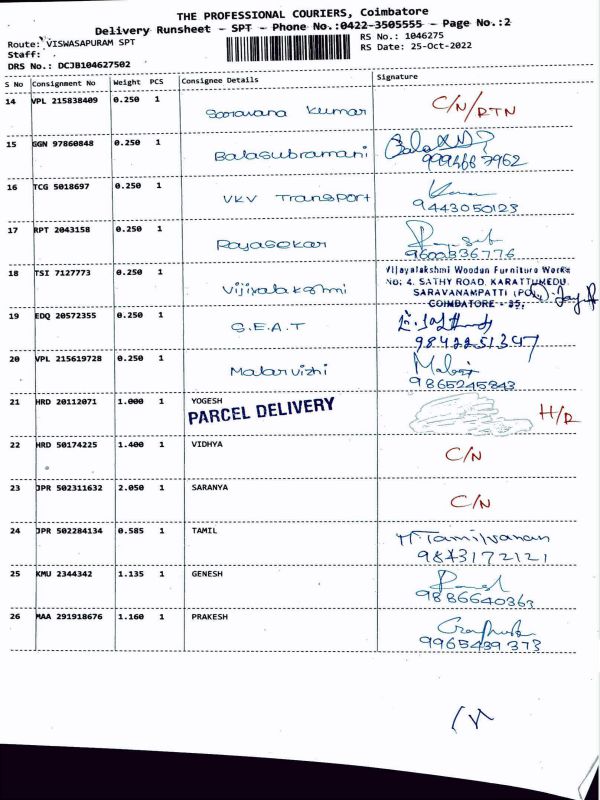 THE PROFESSIONAL COURIERS, Coimbatore
Delivery Runsheet - SPT - Phone No.:0422-3505555 - Page No.:2
Route: VISWASAPURAM SPT RS No.: 1046275
Staff: RS Date: 25-Oct-2022
DRS No.: DCJB104627502
S No Consignment No Weight PCS Consignee Details Signature
14 VPL 215838409 0.250 1 Saravana Kumar C/N/RTN
15 GGN 97860848 0.250 1 Balasubramani
16 TCG 5018697 0.250 1 VKV Transport 9443050123
17 RPT 2043158 0.250 1 Rajasekar 9600336776
18 TSI 7127773 0.250 1 Vijiyalakshmi Vijayalakshmi Wooden Furniture Works
NO: 4. SATHY ROAD, KARATTUMEDU,
SARAVANAMPATTI (PO),
COIMBATORE - 35.
19 EDQ 20572355 0.250 1 G.E.A.T 9842251347
20 VPL 215619728 0.250 1 Malarvizhi 9865245843
21 HRD 20112071 1.000 1 YOGESH H/R
PARCEL DELIVERY
22 HRD 50174225 1.400 1 VIDHYA C/N
23 JPR 502311632 2.050 1 SARANYA C/N
24 JPR 502284134 0.585 1 TAMIL M.Tamilvanan
9843172121
25 KMU 2344342 1.135 1 GENESH 9886640363
26 MAA 291918676 1.160 1 PRAKESH 9965439373